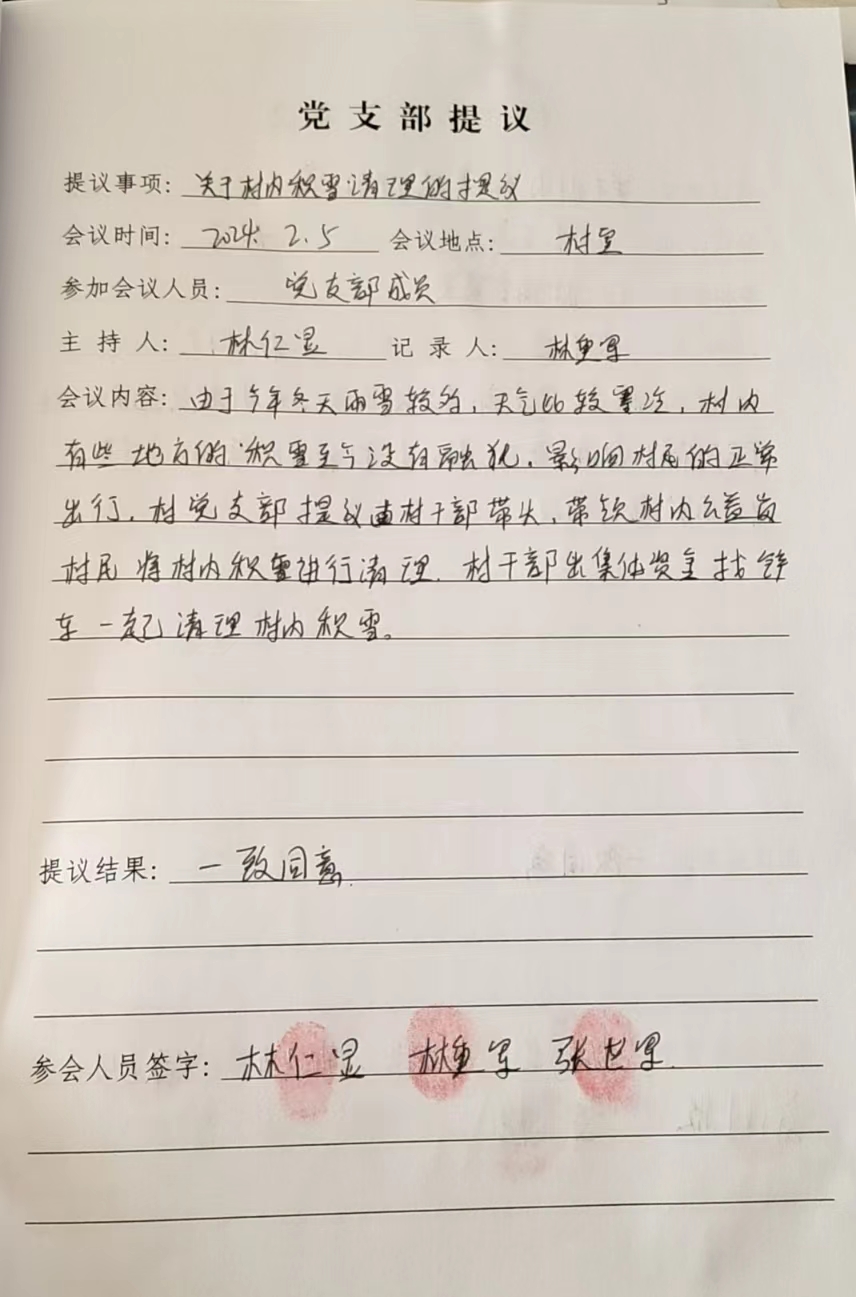 党支部提议
提议事项: 关于村内积雪清理的提议
会议时间: 2024. 2.5 会议地点: 村室
参加会议人员: 党支部成员
主持人: 林仁显 记录人: 林重军
会议内容: 由于今年冬天雨雪较多,天气比较寒冷,村内
有些地方的积雪至今没有融化,影响村民的正常
出行,村党支部提议由村干部带头,带领村内公益岗
村民将村内积雪进行清理.村干部出集体资金找铲
车一起清理村内积雪。
提议结果: 一致同意.
参会人员签字: 林仁显 林重军 张世军.